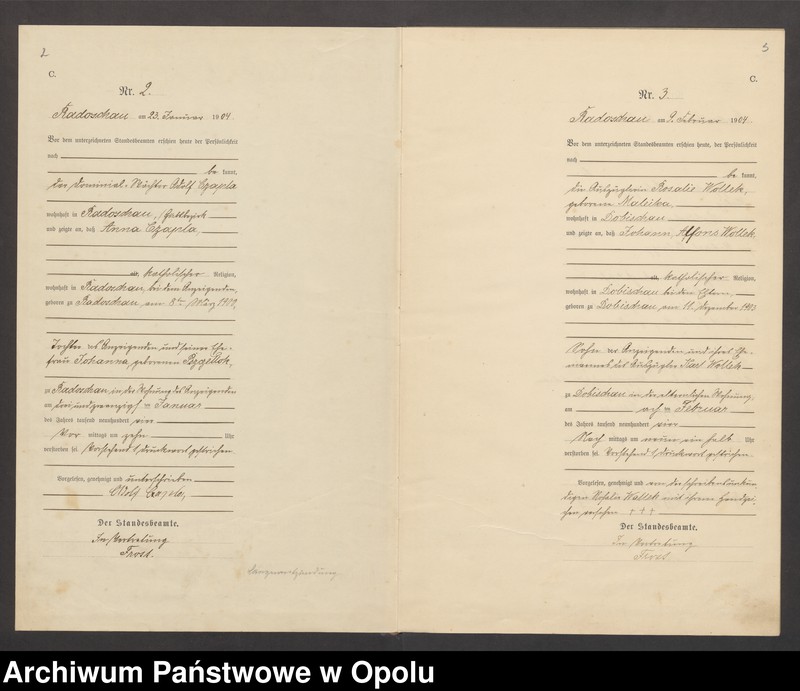 2
C.
Nr. 2.
Radoschau am 23. Januar 1904.
Vor dem unterzeichneten Standesbeamten erschien heute, der Persönlichkeit
nach
be kannt,
der Dominial-Wächter Adolf Czapla
wohnhaft in Radoschau, Gutsbezirk
und zeigte an, daß Anna Czapla,
katholischer Religion,
wohnhaft in Radoschau, bei dem Anzeigenden,
geboren zu Radoschau am 8ten März
Tochter des Anzeigenden und seiner Ehe-
frau Johanna, geborenen
zu Radoschau, in der Wohnung des Anzeigenden
am drei und zwanzigsten Januar
des Jahres tausend neunhundert vier
Vor mittags um zehn Uhr
verstorben sei. Vorstehend 1 Druckwort gestrichen.
Vorgelesen, genehmigt und unterschrieben
Adolf Czapla,
Der Standesbeamte.
In Vertretung
Frost.
Lungenentzündung
3
C.
Nr. 3.
Radoschau am 9. Februar 1904.
Vor dem unterzeichneten Standesbeamten erschien heute, der Persönlichkeit
nach
be kannt,
die Auszüglerin Rosalie Wollek,
geborene
wohnhaft in Dobischau
und zeigte an, daß Johann, Alfons Wollek,
katholischer Religion,
wohnhaft in Dobischau bei den Eltern,
geboren zu Dobischau am 11. Dezember 1903
Sohn der Anzeigenden und ihres Ehe-
mannes des Auszügler Karl Wollek
zu Dobischau in der elterlichen Wohnung,
am acht ten Februar
des Jahres tausend neunhundert vier
Nach mittags um neun ein halb Uhr
verstorben sei. Vorstehend 1 Druckwort gestrichen.
Vorgelesen, genehmigt und von der schreibensunkun-
digen Rosalie Wollek mit ihrem Handzei-
chen versehen †††
Der Standesbeamte.
In Vertretung
Frost.
Archiwum Państwowe w Opolu